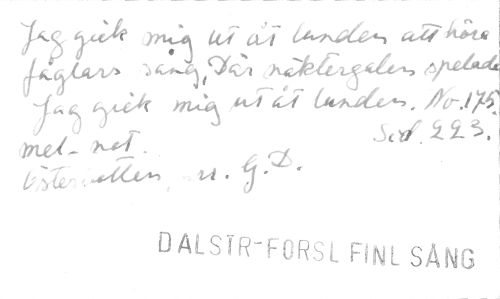 Jag gick mig ut åt lunden att höra
fåglars sång, Där näktergalen spelade
Jag gick mig ut åt lunden. No. 175.
Sid. 223.
mel. not.
G. D.
DALSTR-FORSL FINL SÅNG